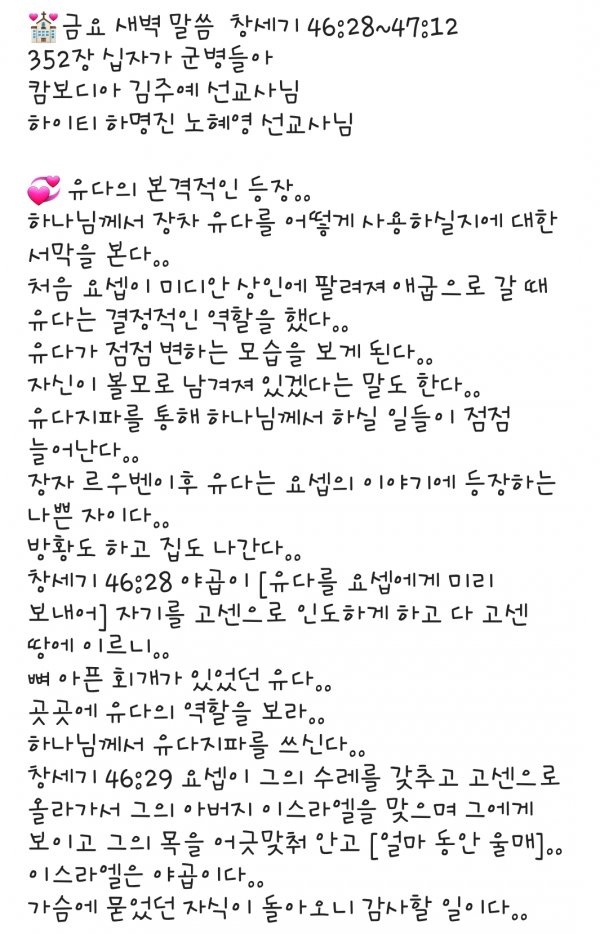 💒금요 새벽 말씀  창세기 46:28~47:12
352장 십자가 군병들아
캄보디아 김주예 선교사님
하이티 하명진 노혜영 선교사님
💞 유다의 본격적인 등장..
하나님께서 장차 유다를 어떻게 사용하실지에 대한
서막을 본다..
처음 요셉이 미디안 상인에 팔려져 애굽으로 갈 때
유다는 결정적인 역할을 했다..
유다가 점점 변하는 모습을 보게 된다..
자신이 볼모로 남겨져 있겠다는 말도 한다..
유다지파를 통해 하나님께서 하실 일들이 점점
늘어난다..
장자 르우벤이후 유다는 요셉의 이야기에 등장하는
나쁜 자이다..
방황도 하고 집도 나간다..
창세기 46:28 야곱이 [유다를 요셉에게 미리
보내어] 자기를 고센으로 인도하게 하고 다 고센
땅에 이르니..
뼈 아픈 회개가 있었던 유다..
곳곳에 유다의 역할을 보라..
하나님께서 유다지파를 쓰신다..
창세기 46:29 요셉이 그의 수레를 갖추고 고센으로
올라가서 그의 아버지 이스라엘을 맞으며 그에게
보이고 그의 목을 어긋맞춰 안고 [얼마 동안 울매]..
이스라엘은 야곱이다..
가슴에 묻었던 자식이 돌아오니 감사할 일이다..